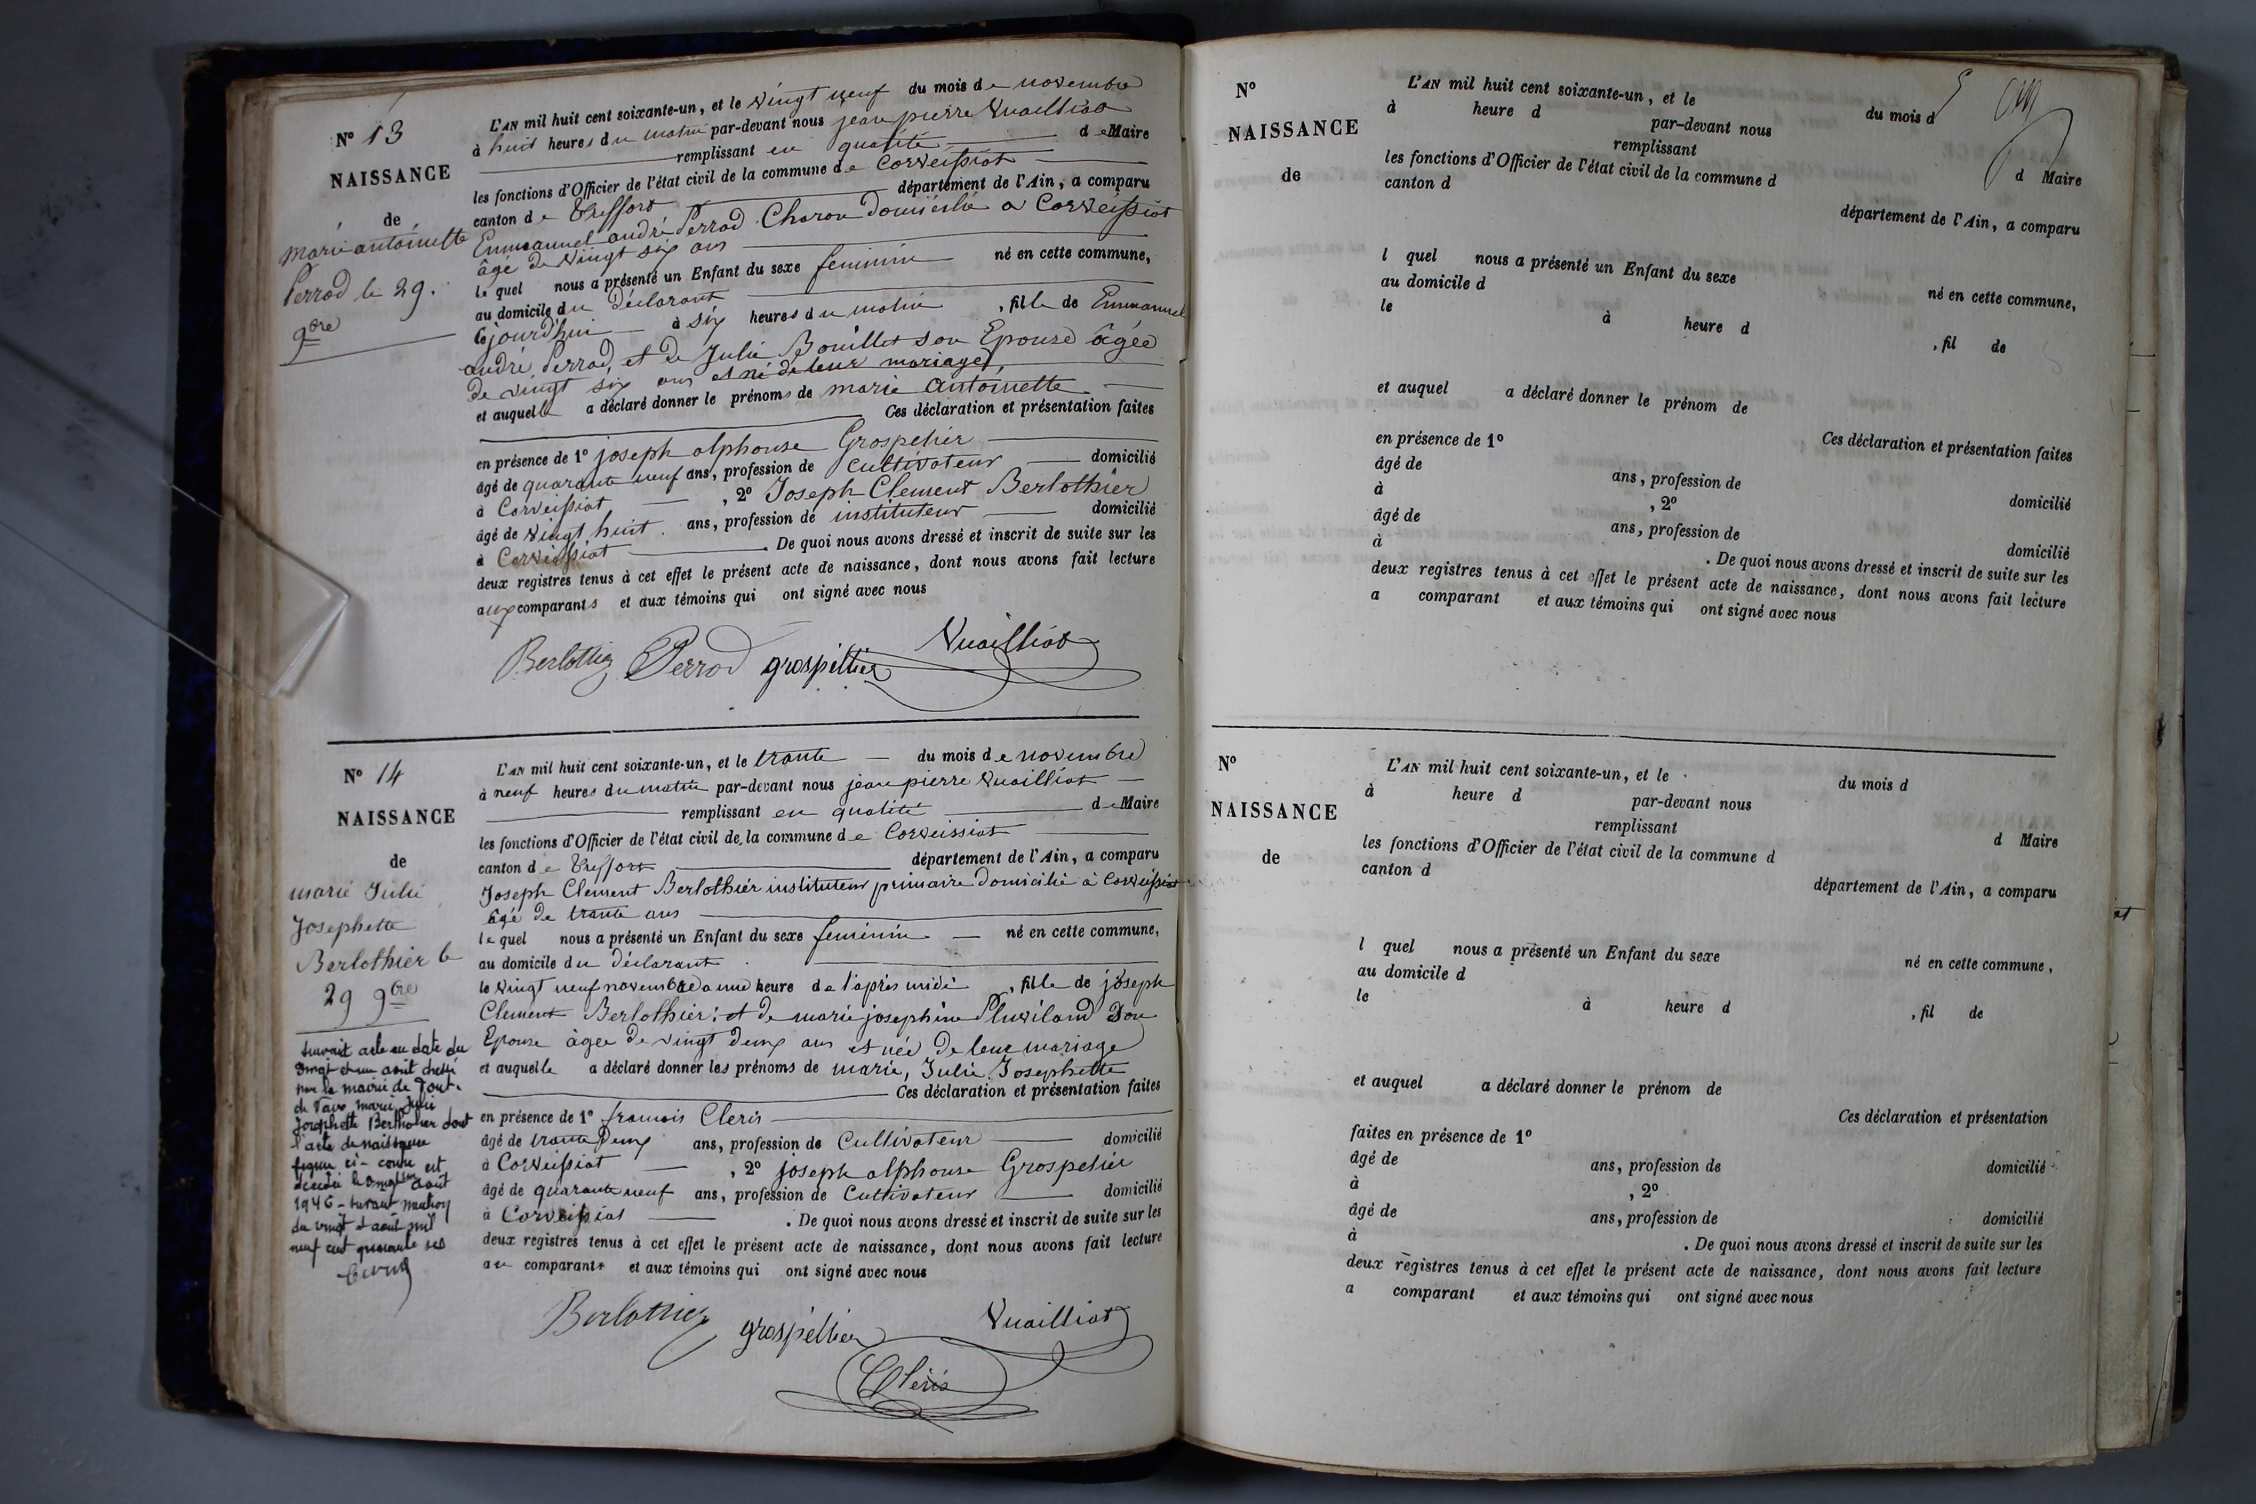 N° 13
NAISSANCE
de
Marie antoinette
Perrod le 29.
9bre
L'AN mil huit cent soixante-un, et le vingt neuf du mois de novembre
à huit heures du matin par-devant nous jean pierre Vuailliat
remplissant en qualité de Maire
les fonctions d'Officier de l'état civil de la commune de Corveissiat
canton de Treffort département de l'Ain, a comparu
Emmanuel andré Perrod Charon domicilié a Corveissiat
âgé de vingt six ans
lequel nous a présenté un Enfant du sexe feminin né en cette commune,
au domicile du déclarant
cejourd'hui à six heures du matin, fille de Emmanuel
andré Perrod, et de Julie Bouillet son Epouse âgée
de vingt six ans et né de leur mariage
et auquelle a déclaré donner le prénoms de marie antoinette
Ces déclaration et présentation faites
en présence de 1° joseph alphonse Grospelier
âgé de quarante neuf ans, profession de cultivateur domicilié
à Corveissiat, 2° Joseph Clement Berlothier
âgé de vingt huit ans, profession de instituteur domicilié
à Corveissiat. De quoi nous avons dressé et inscrit de suite sur les
deux registres tenus à cet effet le présent acte de naissance, dont nous avons fait lecture
aux comparants et aux témoins qui ont signé avec nous
Berlothier Perrod grospellier Vuailliat
N° 14
NAISSANCE
de
marie Julie
Josephette
Berlothier le
29 9bre
suivait acte en date du
vingt et un août dressé
par la mairie de Pont-
de Vaux marie Julie
Josephette Berthelier dont
l'acte de naissance
figure ci-contre est
décédée le vingt août
1946 - suivant mention
du vingt et août mil
neuf cent quarante six
L'AN mil huit cent soixante-un, et le trante du mois de novembre
à neuf heures du matin par-devant nous jean pierre Vuailliat
remplissant en qualité de Maire
les fonctions d'Officier de l'état civil de la commune de Corveissiat
canton de Treffort département de l'Ain, a comparu
Joseph Clement Berlothier instituteur primaire domicilié à Corveissiat
âgé de trante ans
lequel nous a présenté un Enfant du sexe feminin né en cette commune,
au domicile du déclarant
le vingt neuf novembre a une heure de l'après midi, fille de joseph
Clement Berlothier: et de marie josephine Pluviland Son
Epouse âgée de vingt deux ans et née de leur mariage
et auquelle a déclaré donner les prénoms de marie, Julie Josephette
Ces déclaration et présentation faites
en présence de 1° francois Cleris
âgé de trante deux ans, profession de Cultivateur domicilié
à Corveissiat, 2° joseph alphonse Grospelier
âgé de quarante neuf ans, profession de Cultivateur domicilié
à Corveissiat. De quoi nous avons dressé et inscrit de suite sur les
deux registres tenus à cet effet le présent acte de naissance, dont nous avons fait lecture
au comparant et aux témoins qui ont signé avec nous
Berlothier grospellier Vuailliat
Cleris
N°
NAISSANCE
de
L'AN mil huit cent soixante-un, et le du mois d
à heure d par-devant nous
remplissant d Maire
les fonctions d'Officier de l'état civil de la commune d
canton d département de l'Ain, a comparu
l quel nous a présenté un Enfant du sexe né en cette commune,
au domicile d
le à heure d, fil de
et auquel a déclaré donner le prénom de
Ces déclaration et présentation faites
en présence de 1°
âgé de ans, profession de domicilié
à, 2°
âgé de ans, profession de domicilié
à. De quoi nous avons dressé et inscrit de suite sur les
deux registres tenus à cet effet le présent acte de naissance, dont nous avons fait lecture
a comparant et aux témoins qui ont signé avec nous
N°
NAISSANCE
de
L'AN mil huit cent soixante-un, et le du mois d
à heure d par-devant nous
remplissant d Maire
les fonctions d'Officier de l'état civil de la commune d
canton d département de l'Ain, a comparu
l quel nous a présenté un Enfant du sexe né en cette commune,
au domicile d
le à heure d, fil de
et auquel a déclaré donner le prénom de
Ces déclaration et présentation
faites en présence de 1°
âgé de ans, profession de domicilié
à, 2°
âgé de ans, profession de domicilié
à. De quoi nous avons dressé et inscrit de suite sur les
deux registres tenus à cet effet le présent acte de naissance, dont nous avons fait lecture
a comparant et aux témoins qui ont signé avec nous